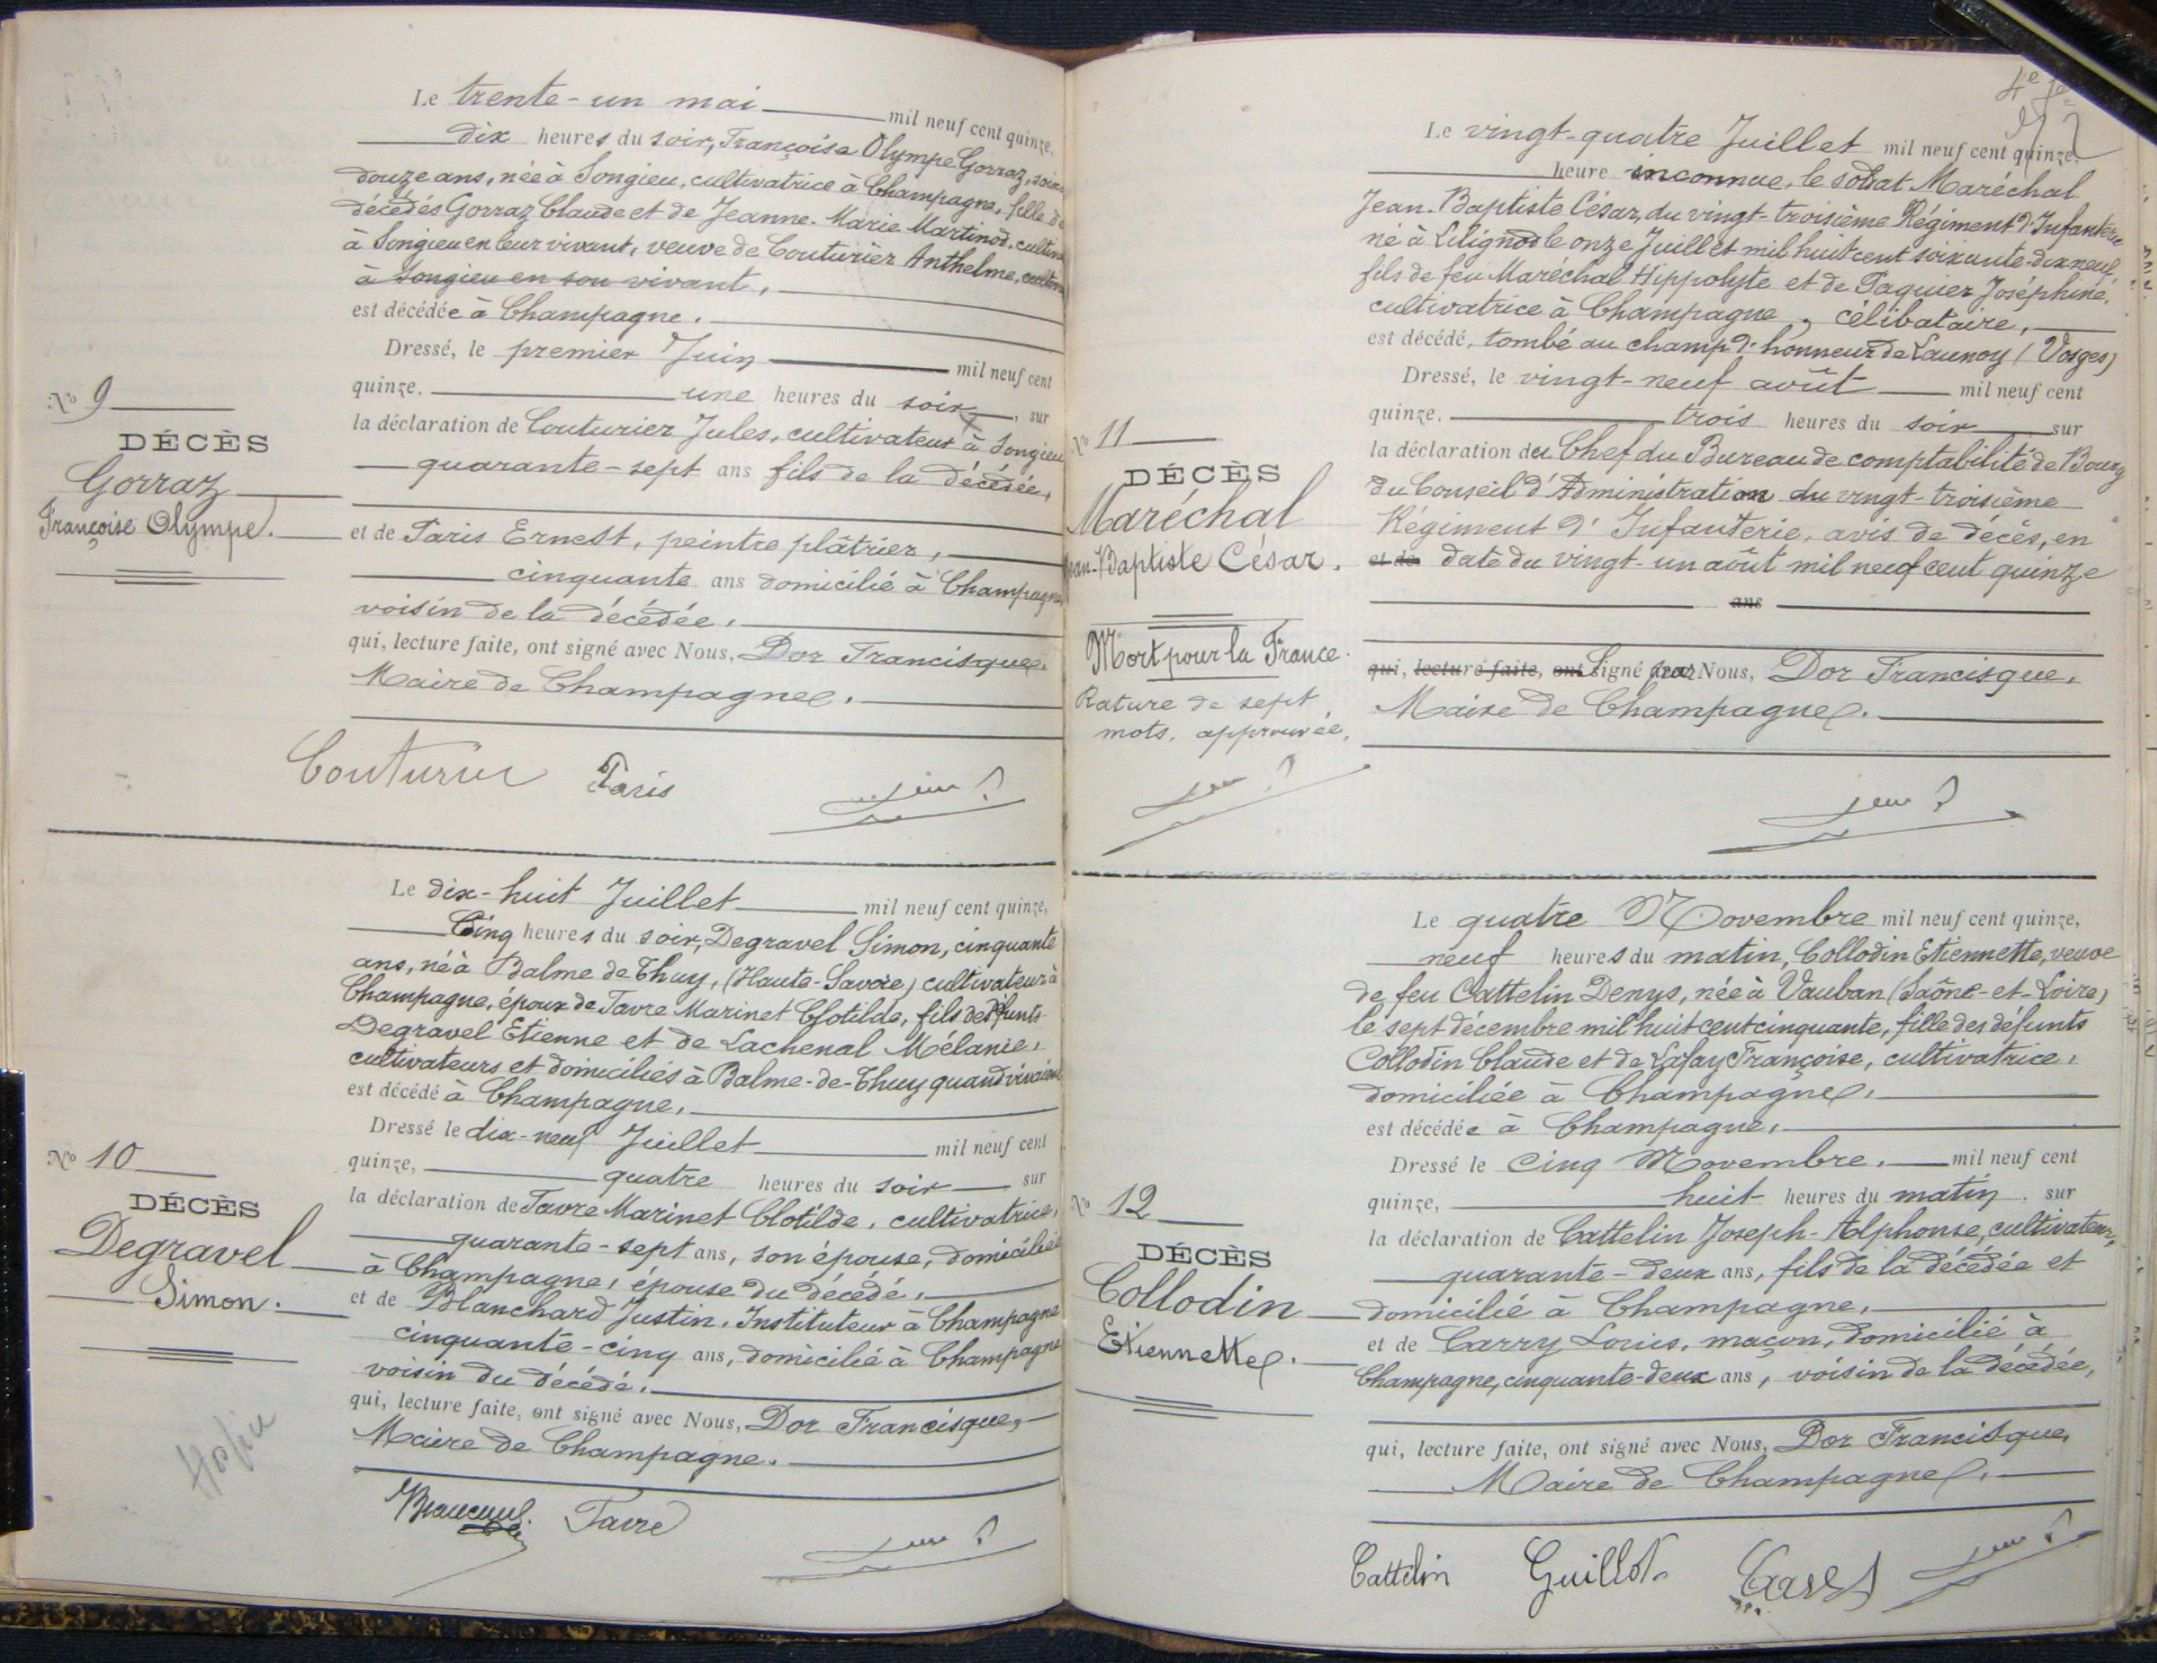 Le trente-un mai mil neuf cent quinze,
dix heures du soir, Françoise Olympe Gorraz, soixante
douze ans, née à Songieu, cultivatrice à Champagne, fille de
décédés Gorraz Claude et de Jeanne-Marie Martinod, cultiv
à Songieu en leur vivant, veuve de Couturier Anthelme, cultiv
à Songieu en son vivant,
est décédée à Champagne.
Dressé, le premier Juin mil neuf cent
quinze, une heures du soir, sur
la déclaration de Couturier Jules, cultivateur à Songieu
quarante-sept ans fils de la décédée,
et de Paris Ernest, peintre plâtrier,
cinquante ans domicilié à Champagne
voisin de la décédée,
qui, lecture faite, ont signé avec Nous, Dor Francisque,
Maire de Champagne.
Couturier Paris
No 9
DÉCÈS
Gorraz
Françoise Olympe.
Le dix-huit Juillet mil neuf cent quinze,
Cinq heures du soir, Degravel Simon, cinquante
ans, né à Balme de Thuy, (Haute-Savoie) cultivateur à
Champagne, époux de Favre Marinet Clotilde, fils de défunts
Degravel Etienne et de Lachenal Mélanie,
cultivateurs et domiciliés à Balme-de-Thuy quand vivaient
est décédé à Champagne,
Dressé le dix-neuf Juillet mil neuf cent
quinze, quatre heures du soir sur
la déclaration de Favre Marinet Clotilde, cultivatrice,
quarante-sept ans, son épouse, domiciliée
à Champagne, épouse du décédé,
et de Blanchard Justin, Instituteur à Champagne
cinquante-cinq ans, domicilié à Champagne
voisin du décédé,
qui, lecture faite, ont signé avec Nous, Dor Francisque,
Maire de Champagne.
Favre
No 10
DÉCÈS
Degravel
Simon.
4e
Le vingt-quatre Juillet mil neuf cent quinze,
heure inconnue, le soldat Maréchal
Jean-Baptiste César, du vingt-troisième Régiment d'Infanterie
né à Lilignod le onze Juillet mil huit cent soixante-dix neuf,
fils de feu Maréchal Hippolyte et de Paquier Joséphine,
cultivatrice à Champagne, célibataire,
est décédé, tombé au champ d'honneur de Launoy (Vosges)
Dressé, le vingt-neuf août mil neuf cent
quinze, trois heures du soir sur
la déclaration du Chef du Bureau de comptabilité de Bourg
du Conseil d'Administration du vingt-troisième
Régiment d'Infanterie, avis de décès, en
et de date du vingt-un août mil neuf cent quinze
ans
qui, lecture faite, ont signé par Nous, Dor Francisque,
Maire de Champagne.
No 11
DÉCÈS
Maréchal
Jean-Baptiste César.
Mort pour la France.
Rature de sept
mots, approuvée,
Le quatre Novembre mil neuf cent quinze,
neuf heures du matin, Collodin Etiennette, veuve
de feu Cattelin Denys, née à Vauban (Saône-et-Loire)
le sept décembre mil huit cent cinquante, fille des défunts
Collodin Claude et de Lafay Françoise, cultivatrice,
domiciliée à Champagne,
est décédée à Champagne,
Dressé le Cinq Novembre, mil neuf cent
quinze, huit heures du matin, sur
la déclaration de Cattelin Joseph-Alphonse, cultivateur,
quarante-deux ans, fils de la décédée et
domicilié à Champagne,
et de Carry Louis, maçon, domicilié à
Champagne, cinquante-deux ans, voisin de la décédée,
qui, lecture faite, ont signé avec Nous, Dor Francisque,
Maire de Champagne.
Cattelin Guillot
No 12
DÉCÈS
Collodin
Etiennette.